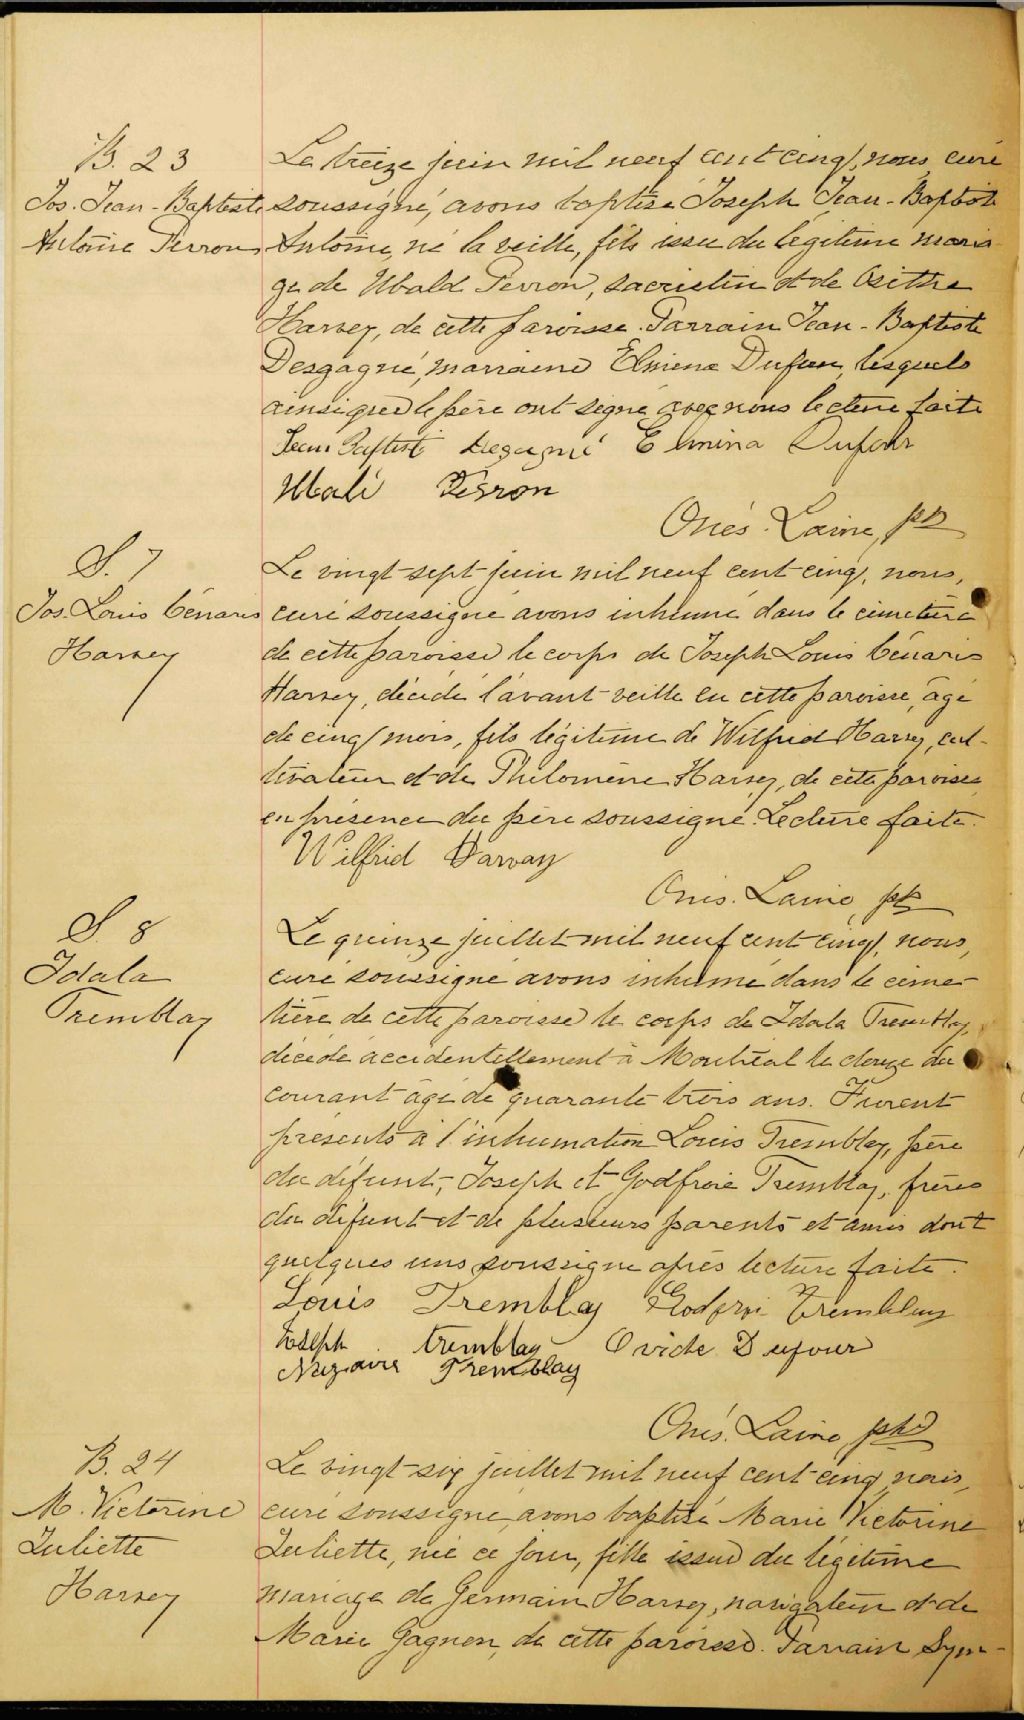 B. 23
Jos. Jean-Baptiste
Antoine Perron
Le treize juin mil neuf cent cinq, nous, curé
soussigné, avons baptisé Joseph Jean-Baptiste
Antoine, né la veille, fils issu du légitime maria-
ge de Ubald Perron, sacristin et de Osithe
Harvey, de cette paroisse. Parrain Jean-Baptiste
Desgagné, marraine Elmina Dufour, lesquels
ainsi que le père ont signé avec nous lecture faite
Jean Baptist Degagné Elmina Dufour
Ubald Perron
Onés. Lavoie, ptre
S. 7
Jos. Louis Cénaris
Harvey
Le vingt-sept juin mil neuf cent cinq, nous,
curé soussigné avons inhumé dans le cimetière
de cette paroisse le corps de Joseph Louis Cénaris
Harvey, décédé l'avant-veille en cette paroisse, âgé
de cinq mois, fils légitime de Wilfrid Harvey, cul-
tivateur et de Philomène Harvey, de cette paroisse,
en présence du père soussigné. Lecture faite.
Wilfrid Harvay
Onés. Lavoie, ptre
S. 8
Idala
Tremblay
Le quinze juillet mil neuf cent cinq, nous,
curé soussigné avons inhumé dans le cime-
tière de cette paroisse le corps de Idala Tremblay,
décédé accidentellement à Montréal le douze du
courant âgé de quarante trois ans. Furent
présents à l'inhumation Louis Tremblay, père
du défunt, Joseph et Godfroie Tremblay, frères
du défunt et de plusieurs parents et amis dont
quelques uns soussigné après lecture faite.
Louis Tremblay Tremblay
Joseph tremblay Ovide Dufour
Tremblay
Onés. Lavoie ptre
B. 24
M. Victorine
Juliette
Harvey
Le vingt-six juillet mil neuf cent cinq, nous,
curé soussigné, avons baptisé Marie Victorine
Juliette, née ce jour, fille issue du légitime
mariage de Germain Harvey, navigateur et de
Marie Gagnon, de cette paroisse. Parrain Sym-